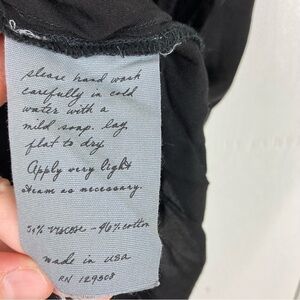 please hand wash
carefully in cold
water with a
mild soap. lay
flat to dry.
Apply very light
steam as necessary.
54% viscose - 46% cotton
made in USA
RN 129308